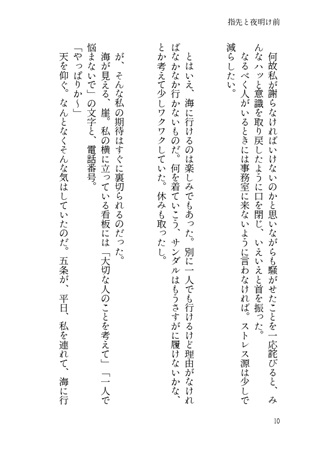 指先と夜明け前
何故私が謝らなければいけないのかと思いながらも騒がせたことを一応詫びると、み
んなハッと意識を取り戻したように口を閉じ、いえいえと首を振った。
なるべく人がいるときには事務室に来ないように言わなければ。ストレス源は少しで
減らしたい。
とはいえ、海に行けるのは楽しみでもあった。別に一人でも行けるけど理由がなけれ
ばなかなか行かないものだ。何を着ていこう、サンダルはもうさすがに履けないかな、
とか考えて少しワクワクしていた。休みも取ったし。
が、そんな私の期待はすぐに裏切られるのだった。
海が見える、崖。私の横に立っている看板には「大切な人のことを考えて」「一人で
悩まないで」の文字と、電話番号。
「やっぱりか〜」
天を仰ぐ。なんとなくそんな気はしていたのだ。五条が、平日、私を連れて、海に行
10